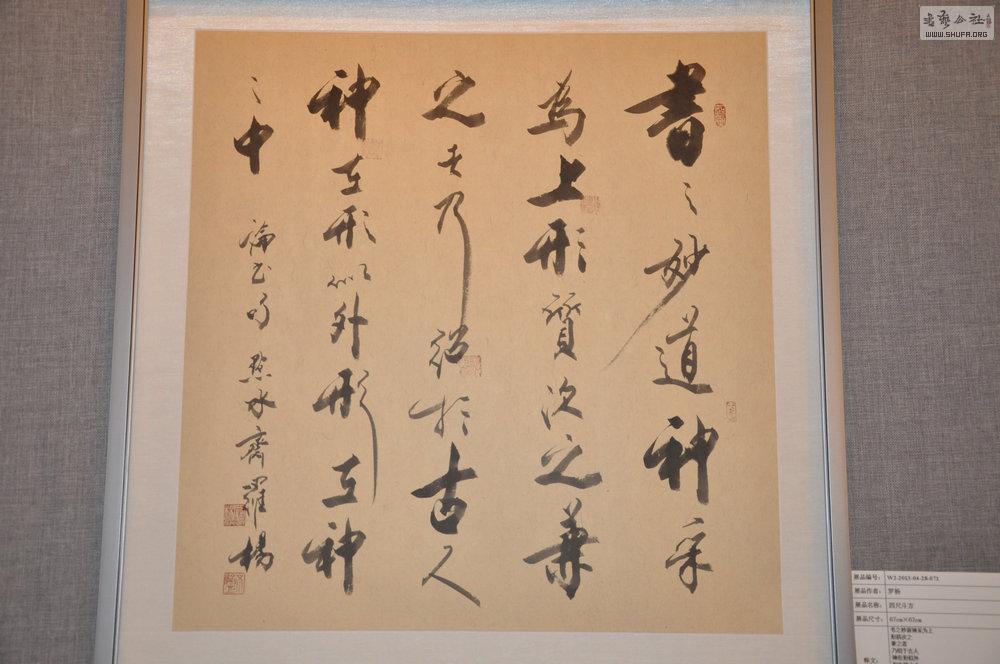 書之妙道神采
為上形質次之兼
之者乃紹於古人
神在形似外形在神
之中
論書句 點水齋羅楊
書藝公社
WWW.SHUFA.ORG
展品编号: W2-2013-04-28-071
展品作者: 罗杨
展品名称: 四尺斗方
展品尺寸: 67cm×67cm
释文:
书之妙道神采为上
形质次之
兼之者
乃绍于古人